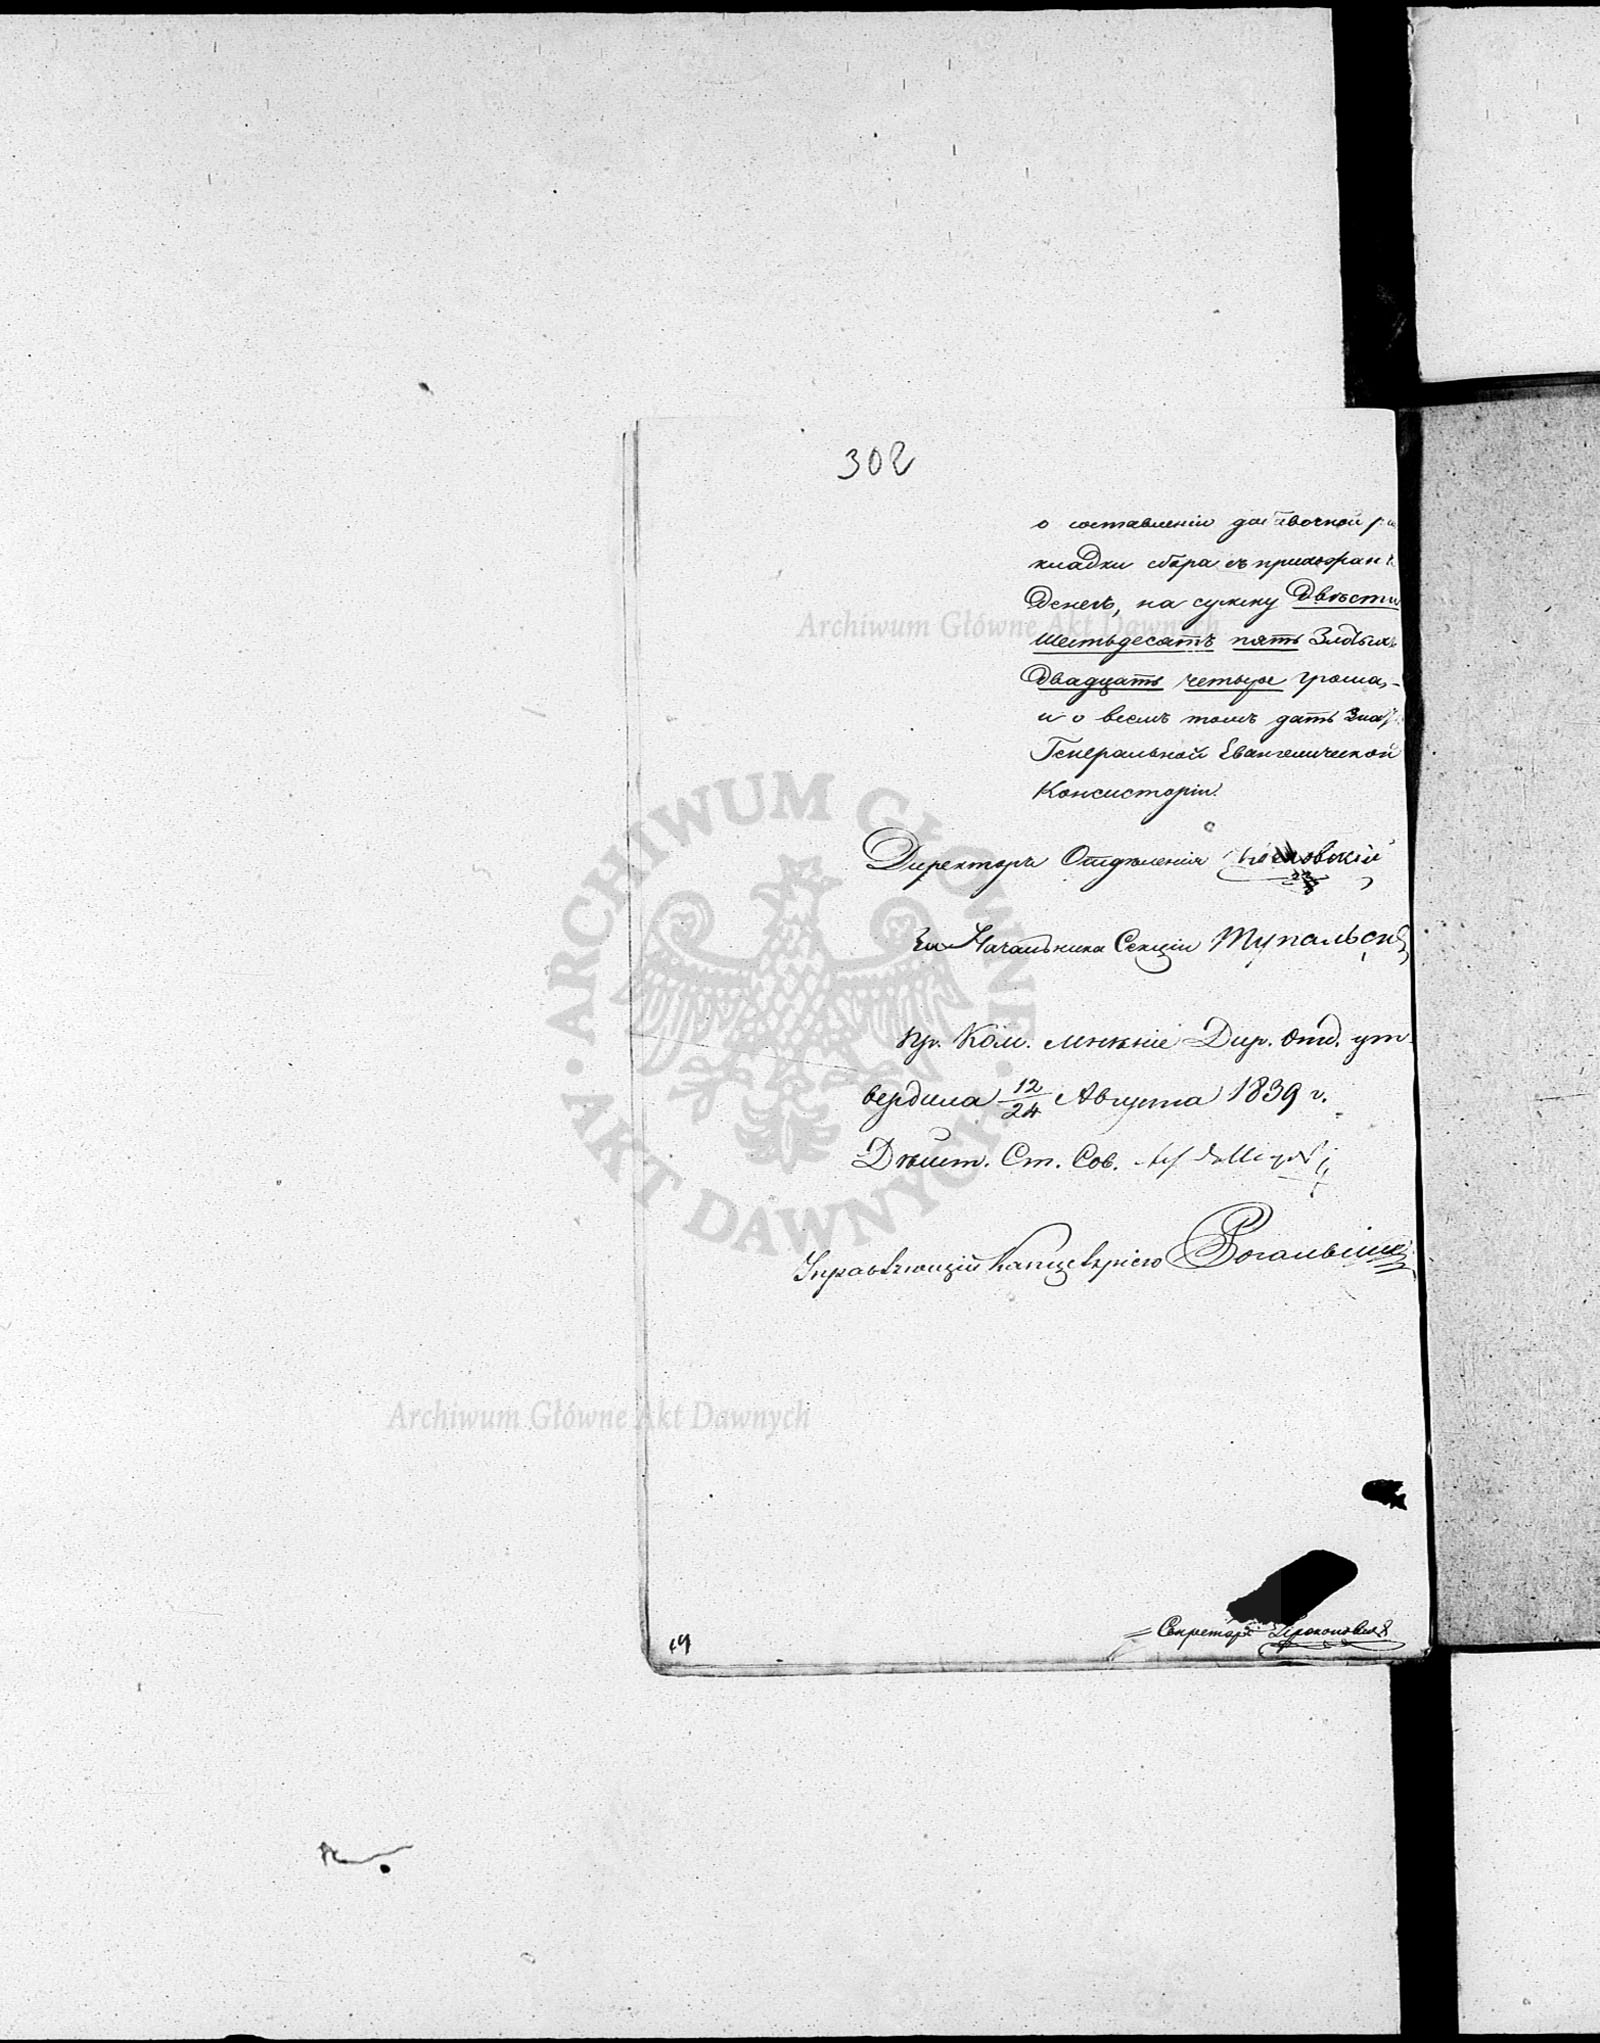 302
о составленiи добавочной
кладки сбора съ прихожан
Денегъ, на сумму Двѣсти
Шестьдесятъ пять Злотыхъ
Двадцать четыре гроша,
и о всемъ томъ дать знат
Генеральной Евангелической
Консисторiи.
Директоръ Отдѣленiя
За Начальника Секцiи Тупальск
Пр. Ком. мнѣнiе Дир. Отд. ут
вердила 12/24 Августа 1839 г.
Дѣйст. Ст. Сов.
Управляющiй Канцелярiею
Секретарь
Archiwum Główne Akt Dawnych
ARCHIWUM GŁÓWNE AKT DAWNYCH
Archiwum Główne Akt Dawnych